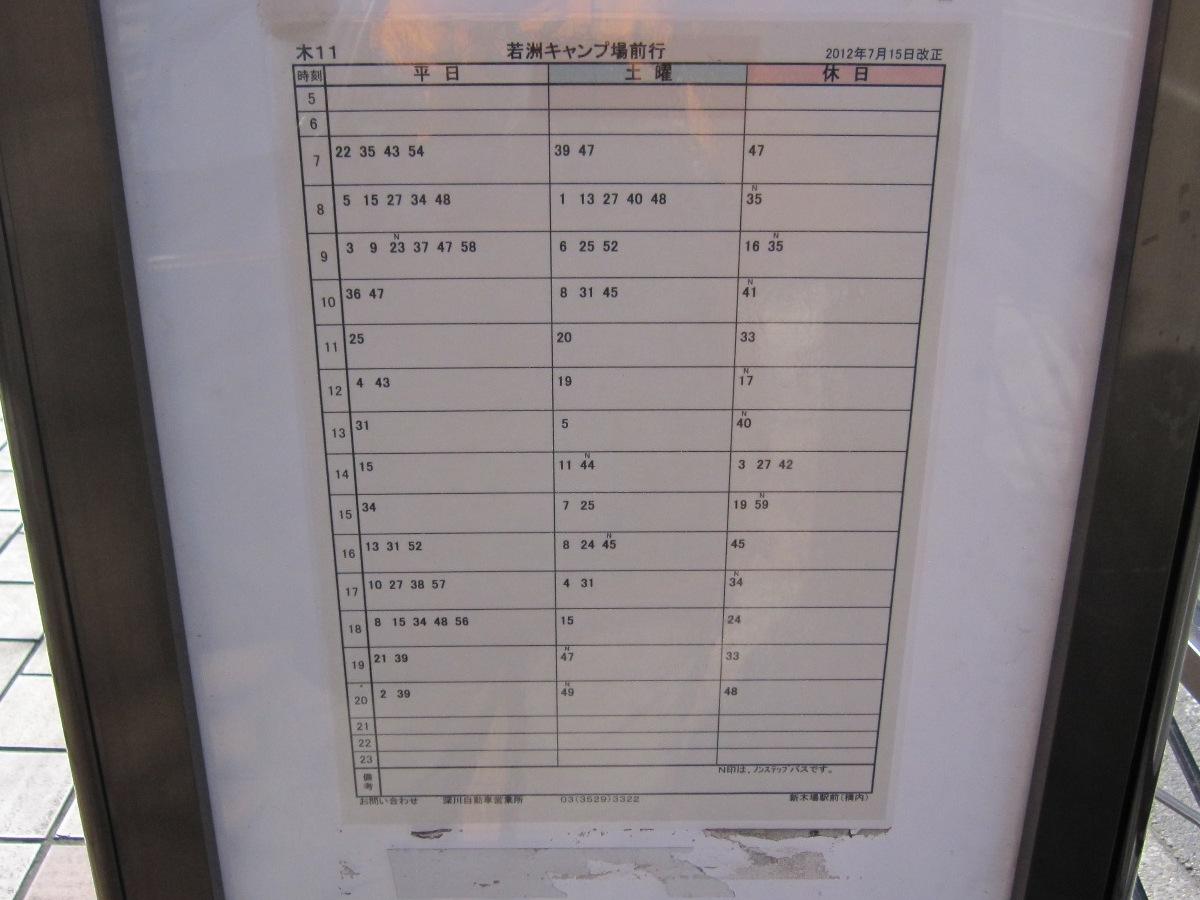 木11 若洲キャンプ場前行 2012年7月15日改正
時刻 平日 土曜 休日
5
6
7 22 35 43 54 39 47 47
N
8 5 15 27 34 48 1 13 27 40 48 35
N N
9 3 9 23 37 47 58 6 25 52 16 35
N
10 36 47 8 31 45 41
11 25 20 33
N
12 4 43 19 17
N
13 31 5 40
N
14 15 11 44 3 27 42
N
15 34 7 25 19 59
N
16 13 31 52 8 24 45 45
N
17 10 27 38 57 4 31 34
18 8 15 34 48 56 15 24
N
19 21 39 47 33
N
20 2 39 49 48
21
22
23
備考 N印は、ノンステップバスです。
お問い合わせ 深川自動車営業所 03(3529)3322 新木場駅前(構内)